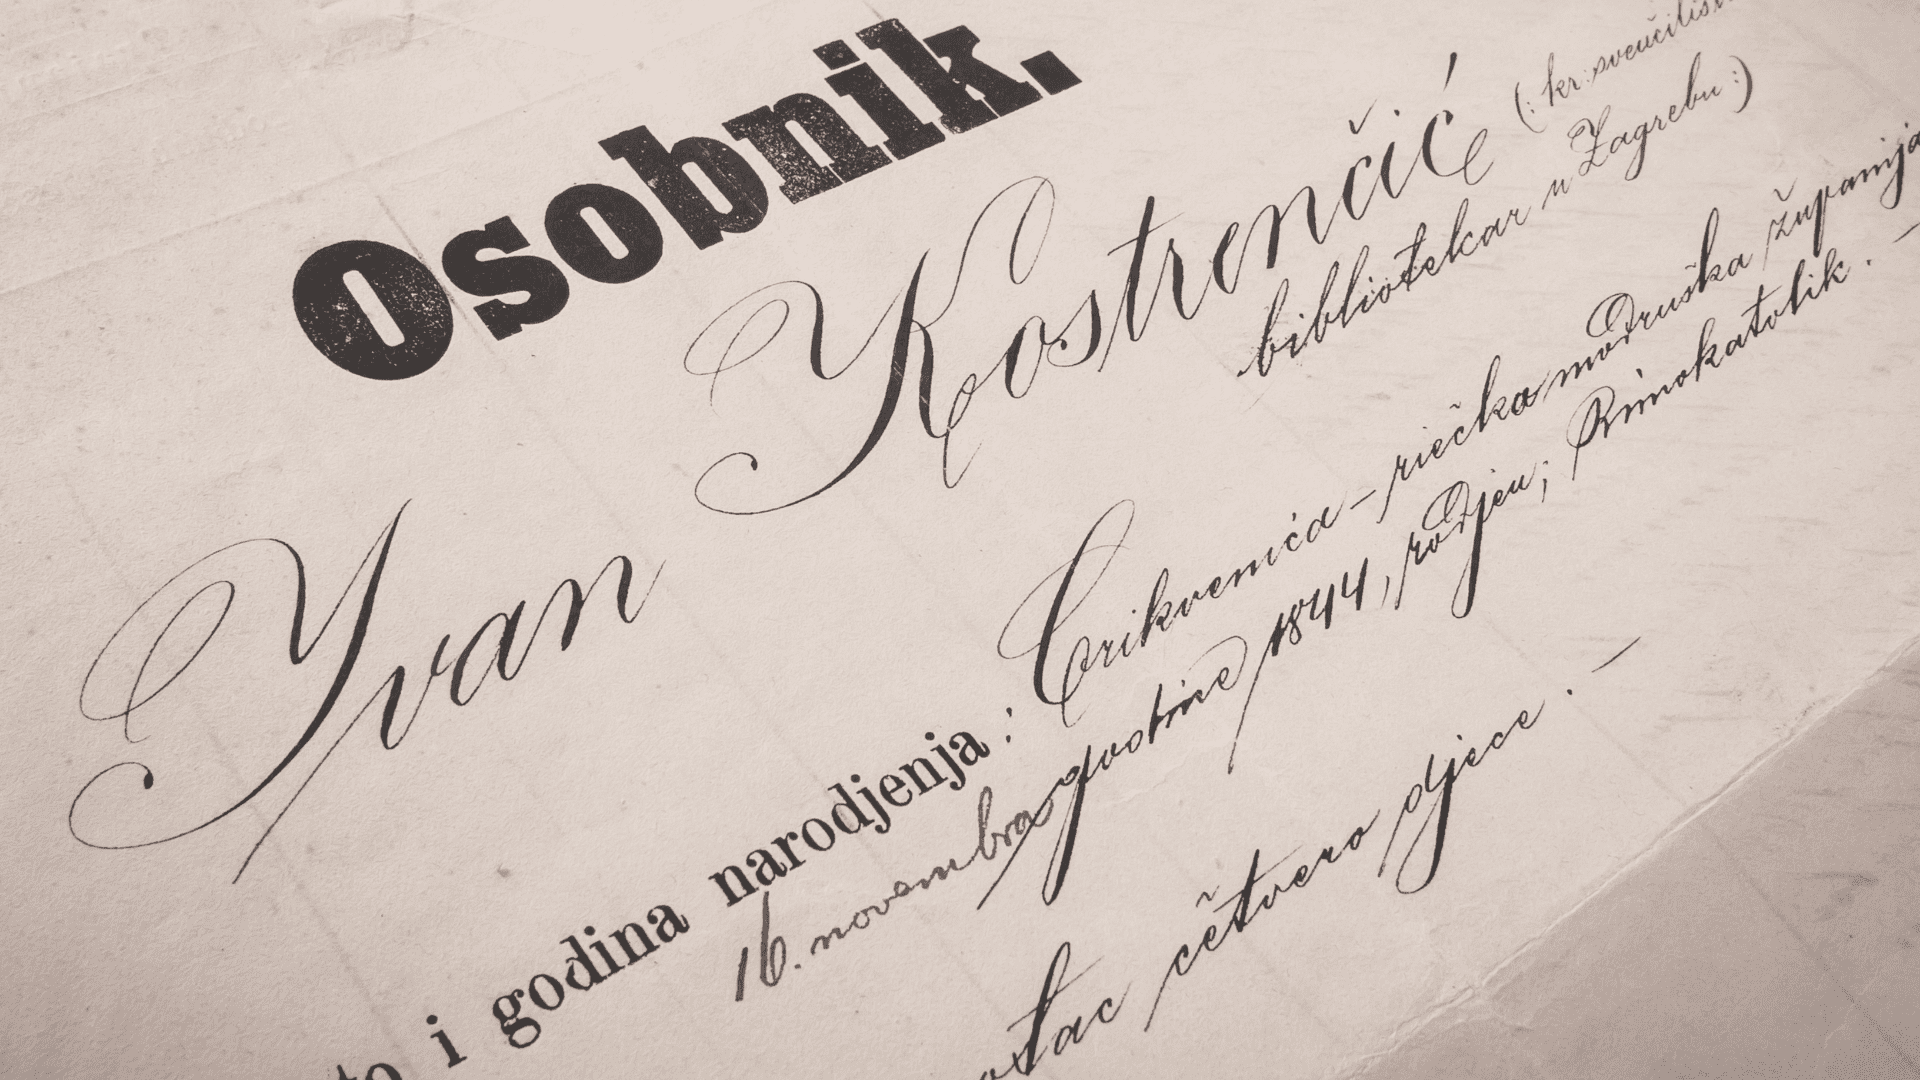 Osobnik.
Ivan Kostrenčić (: kr: sveučilišn
bibliotekar u Zagrebu :)
to i godina narodjenja: Crikvenica – riečko modruška županija
16. novembra godine 1844, rodjen; Rimokatolik. –
otac četvero djece. –